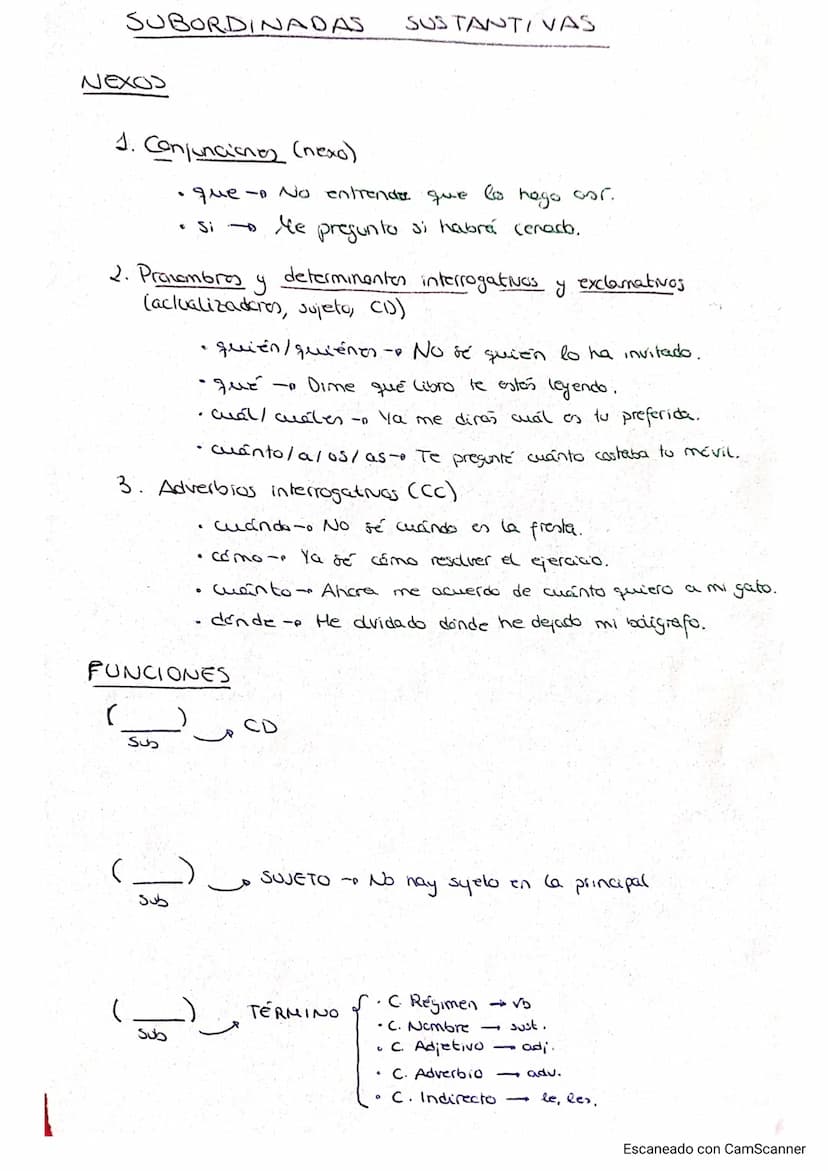 SUBORDINADAS SUSTANTIVAS
NEXOS
1. Conjunciones (nexo)
• que → No entiendo que lo haga así.
• si → Me pregunto si habrá cenado.
2. Pronombres y determinantes interrogativos y exclamativos
(actualizadores, sujeto, CD)
• quién/quiénes → No sé quién lo ha invitado.
• qué → Dime qué libro te estás leyendo.
• cuál/cuáles → Ya me dirás cuál es tu preferida.
• cuánto/a/os/as → Te pregunté cuánto costaba tu móvil.
3. Adverbios interrogativos (CC)
• cuándo → No sé cuándo es la fiesta.
• cómo → Ya sé cómo resolver el ejercicio.
• cuánto → Ahora me acuerdo de cuánto quiero a mi gato.
• dónde → He olvidado dónde he dejado mi bolígrafo.
FUNCIONES
(___) → CD
sub
(___) → SUJETO → No hay sujeto en la principal
sub
(___) → TÉRMINO
sub
• C. Régimen → vb
• C. Nombre → sust.
• C. Adjetivo → adj.
• C. Adverbio → adv.
• C. Indirecto → le, les.
Escaneado con CamScanner